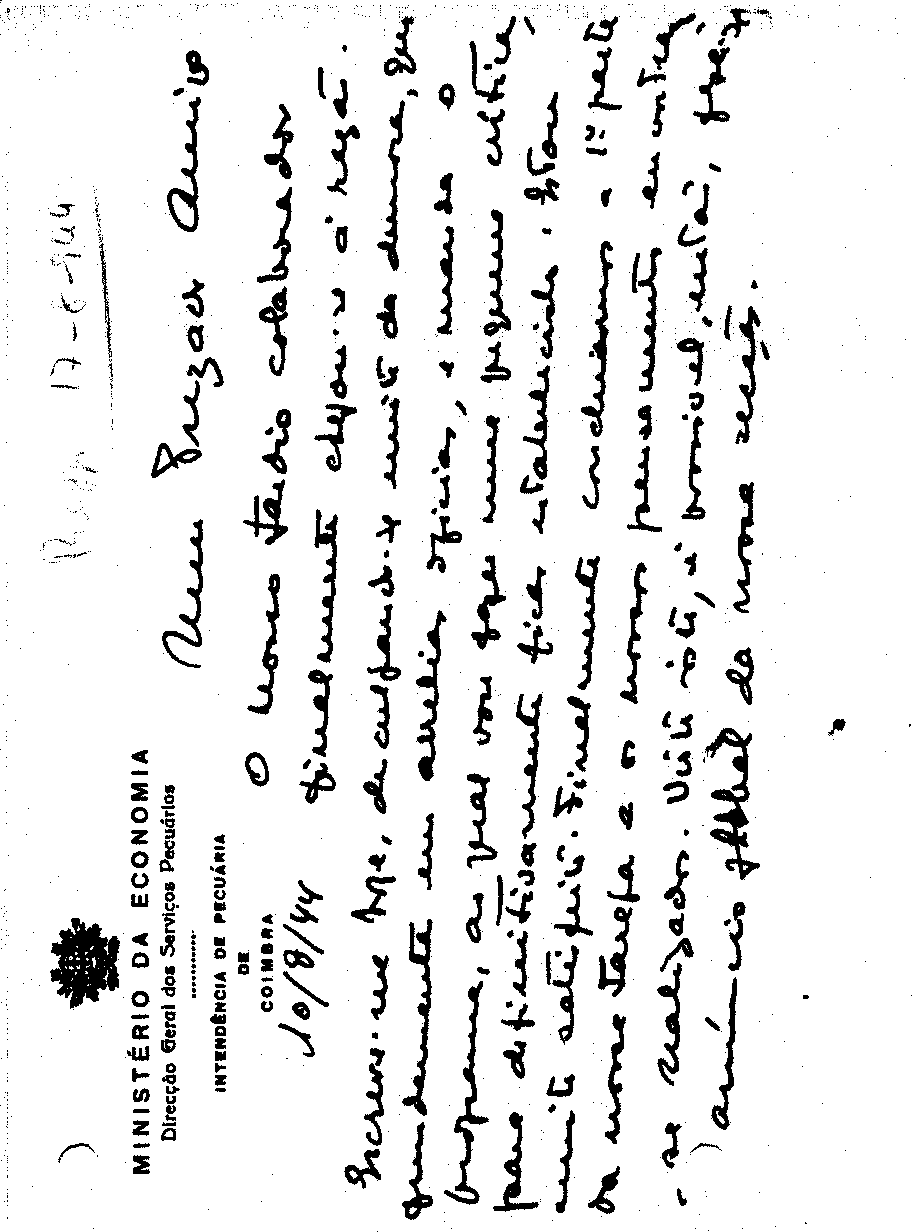 Resp. 17-8-944
MINISTÉRIO DA ECONOMIA
Direcção Geral dos Serviços Pecuários
INTENDÊNCIA DE PECUÁRIA
DE
COIMBRA
10/8/44
Meu Prezado Amigo
O nosso tardio colaborador
finalmente chegou-se à razão.
Escreve-me hoje, desculpando-se muito da demora,
fundamenta em afazeres oficiais, e manda o
programa, ao qual vou fazer uma pequena crítica,
para definitivamente ficar estabelecido. Estou
muito satisfeito. Finalmente concluimos a 1ª parte
da nossa tarefa e o nosso pensamento
-se realizado. Visto isto, é possivel, então,
anúncio da nossa secção.